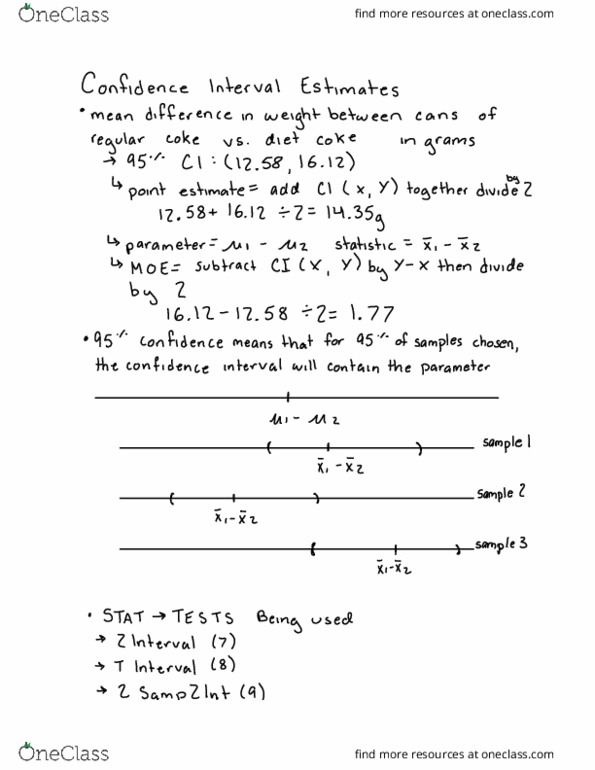 OneClass
find more resources at oneclass.com
Confidence Interval Estimates
• mean difference in weight between cans of
regular coke vs. diet coke in grams
→ 95% CI : (12.58, 16.12)
↳ point estimate = add CI (X, Y) together divide by 2
12.58+ 16.12 ÷2= 14.35g
↳ parameter = μ1 - μ2 statistic = x̄1 - x̄2
↳ MOE= subtract CI (X, Y) by Y-X then divide
by 2
16.12-12.58 ÷2= 1.77
• 95% confidence means that for 95% of samples chosen,
the confidence interval will contain the parameter
μ1 - μ2
sample 1
x̄1 - x̄2
sample 2
x̄1-x̄2
sample 3
x̄1-x̄2
• STAT → TESTS Being used
→ Z Interval (7)
→ T Interval (8)
→ 2 SampZInt (9)
OneClass
find more resources at oneclass.com